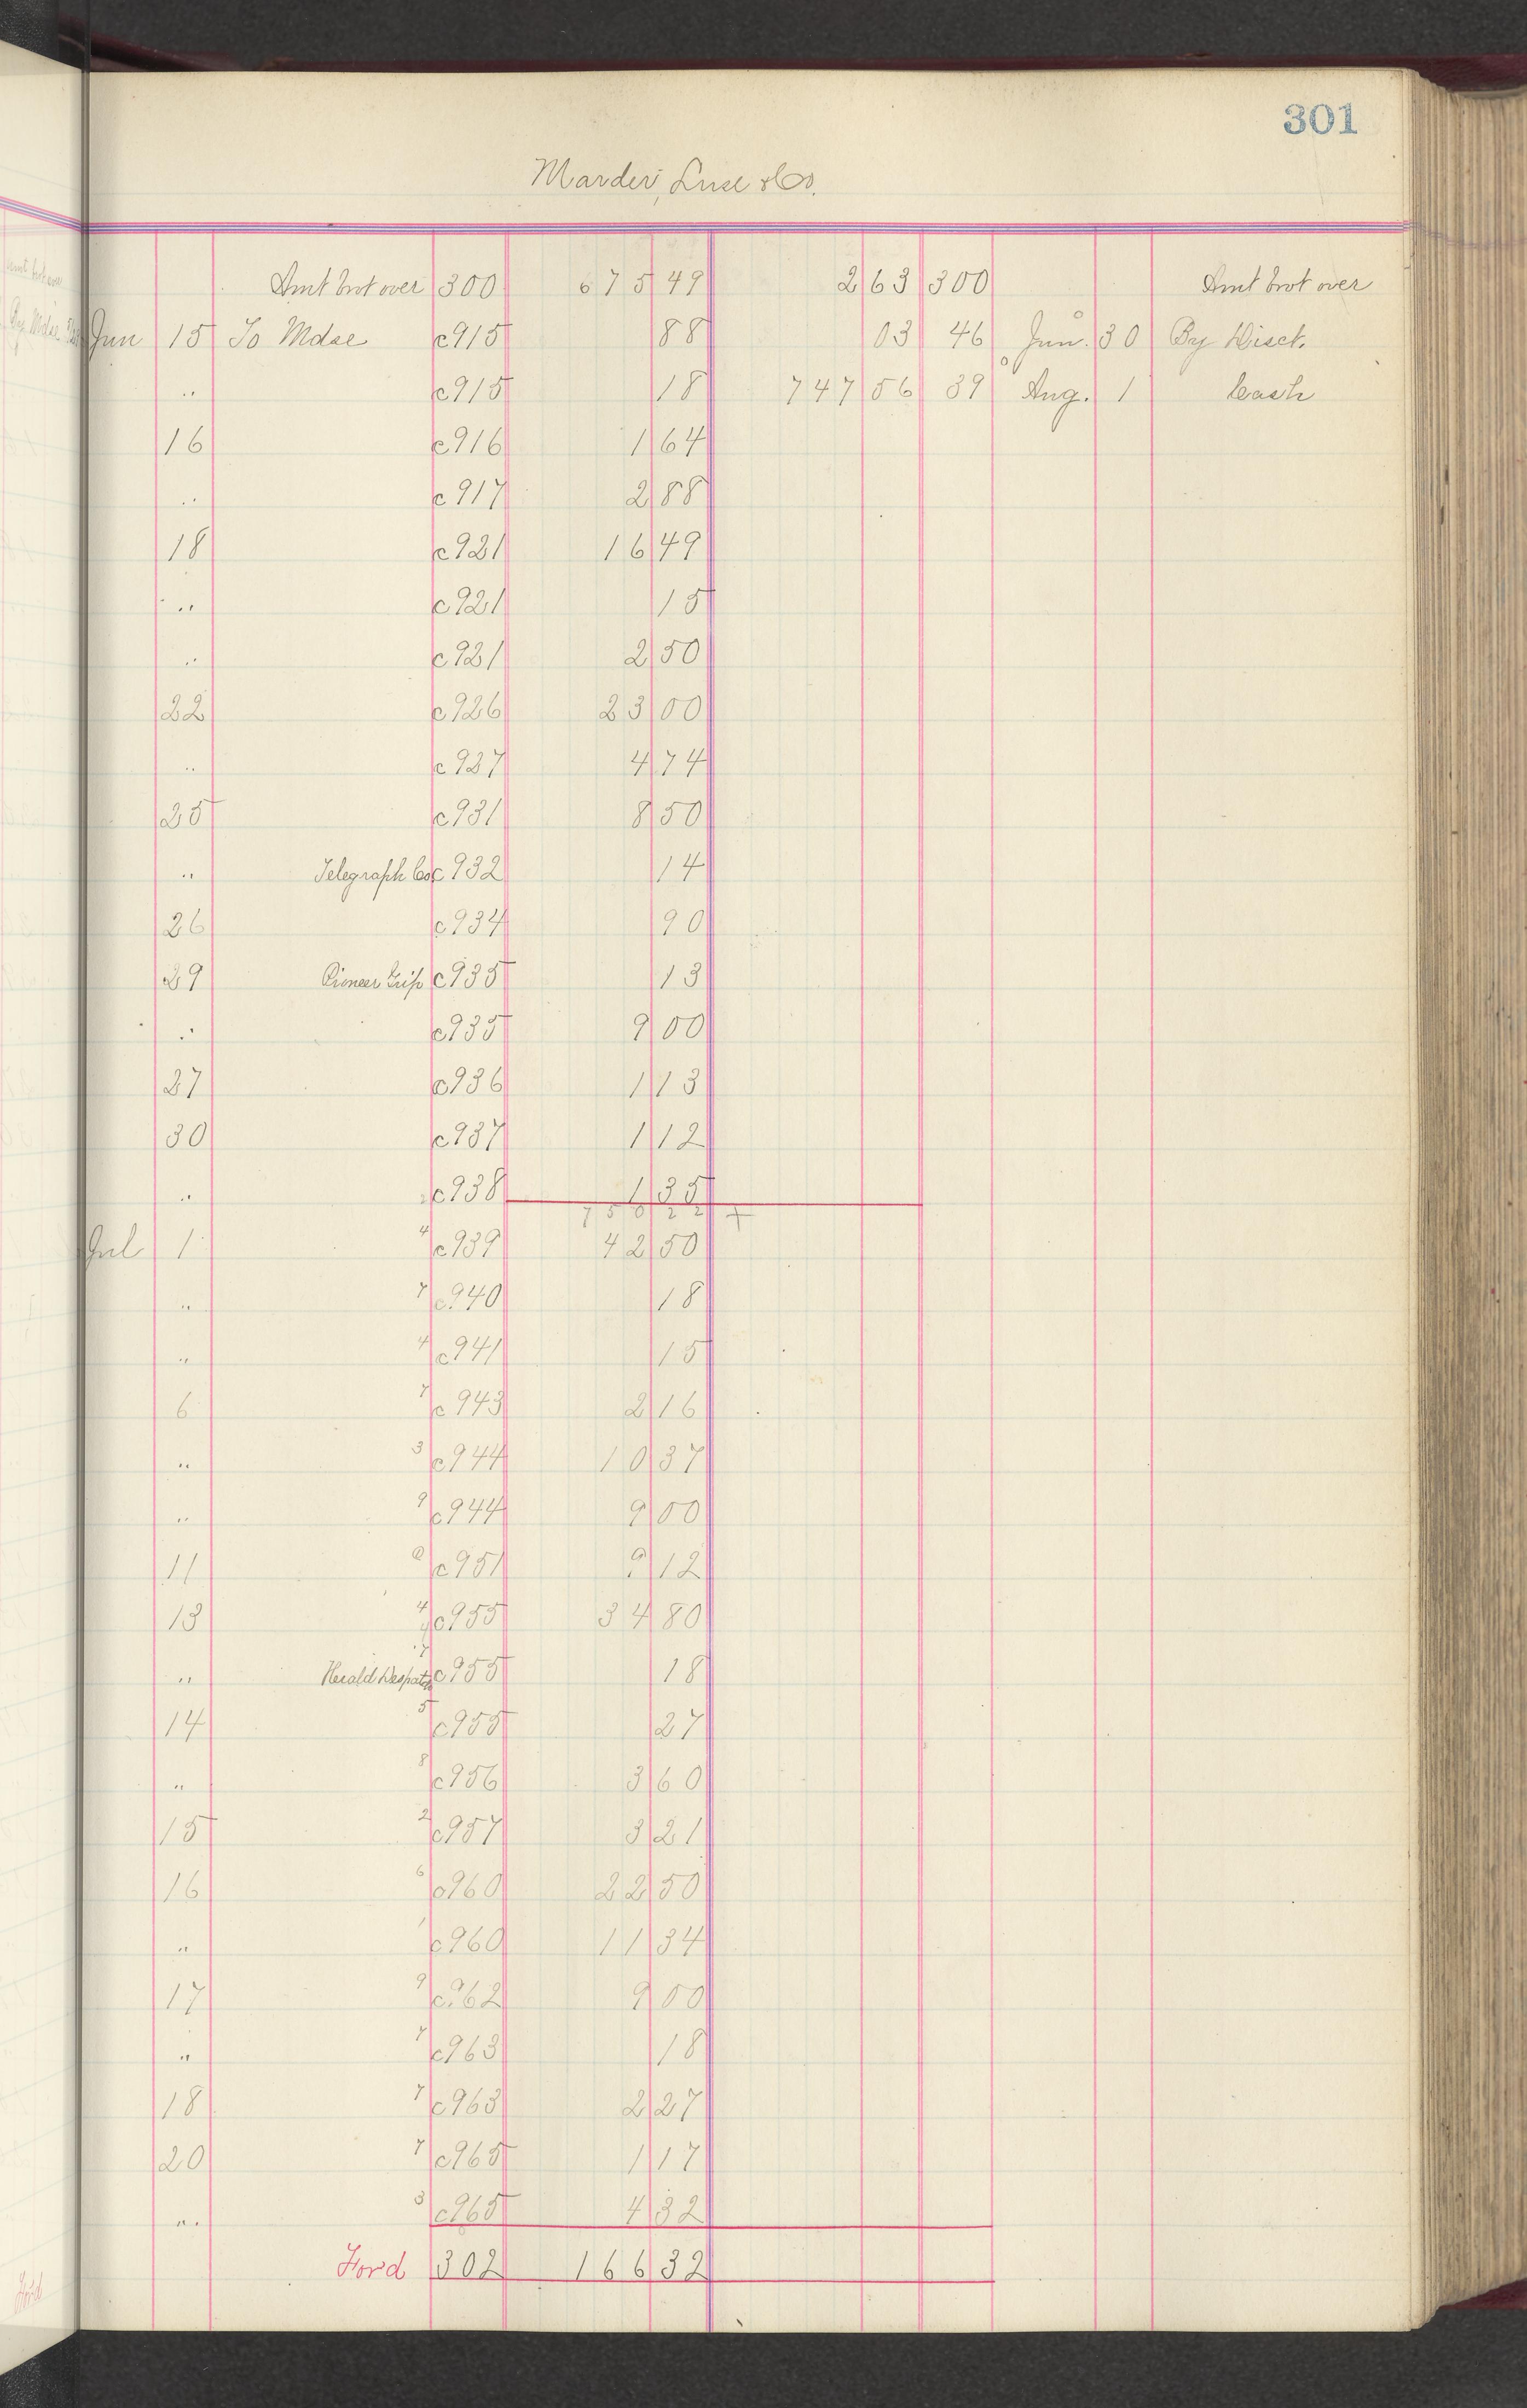 301
Marder, Luse & Co.
Amt brot over 300 675 49 2 63 300 Amt brot over
Jun 15 To Mdse c915 88 03 46 Jun. 30 By Disct.
" c915 18 747 56 39 Aug. 1 Cash
16 c916 1 64
" c917 2 88
18 c921 16 49
" c921 15
" c921 2 50
22 c926 23 00
" c927 4 74
25 c931 8 50
" Telegraph Co c932 14
26 c934 90
29 Pioneer Grip c935 13
" c935 9 00
27 c936 1 13
30 c937 1 12
" c938 1 35
750 22
Jul 1 4 c939 42 50
" 7 c940 18
" 4 c941 15
6 7 c943 2 16
" 3 c944 10 37
" 9 c944 9 00
11 c951 9 12
13 4 c955 34 80
" Herald Despatch 7 c955 18
14 5 c955 27
" 8 c956 3 60
15 2 c957 3 21
16 6 c960 22 50
" 1 c960 11 34
17 9 c962 9 00
" 7 c963 18
18 7 c963 2 27
20 7 c965 1 17
" 3 c965 4 32
Ford 302 166 32